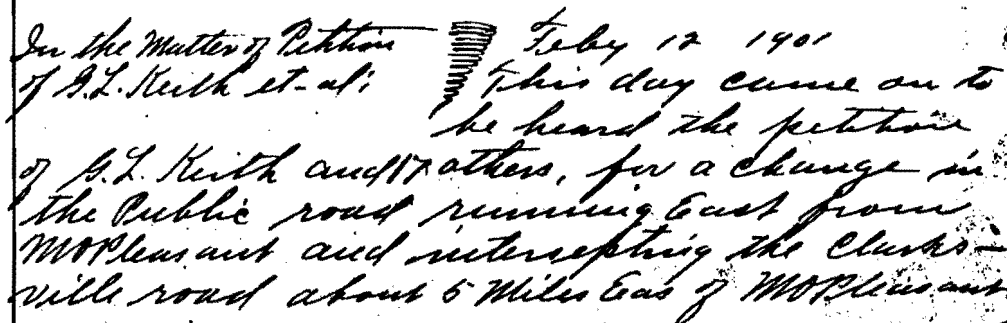 In the Matter of Petition
of G.L. Keith et-al:
Feby 12 1901
This day came on to
be heard the petition
of G.L. Keith and 17 others, for a change in
the Public road running East from
Mt Pleasant and intersepting the Clarks-
ville road about 5 Miles Eas of Mt Pleasant